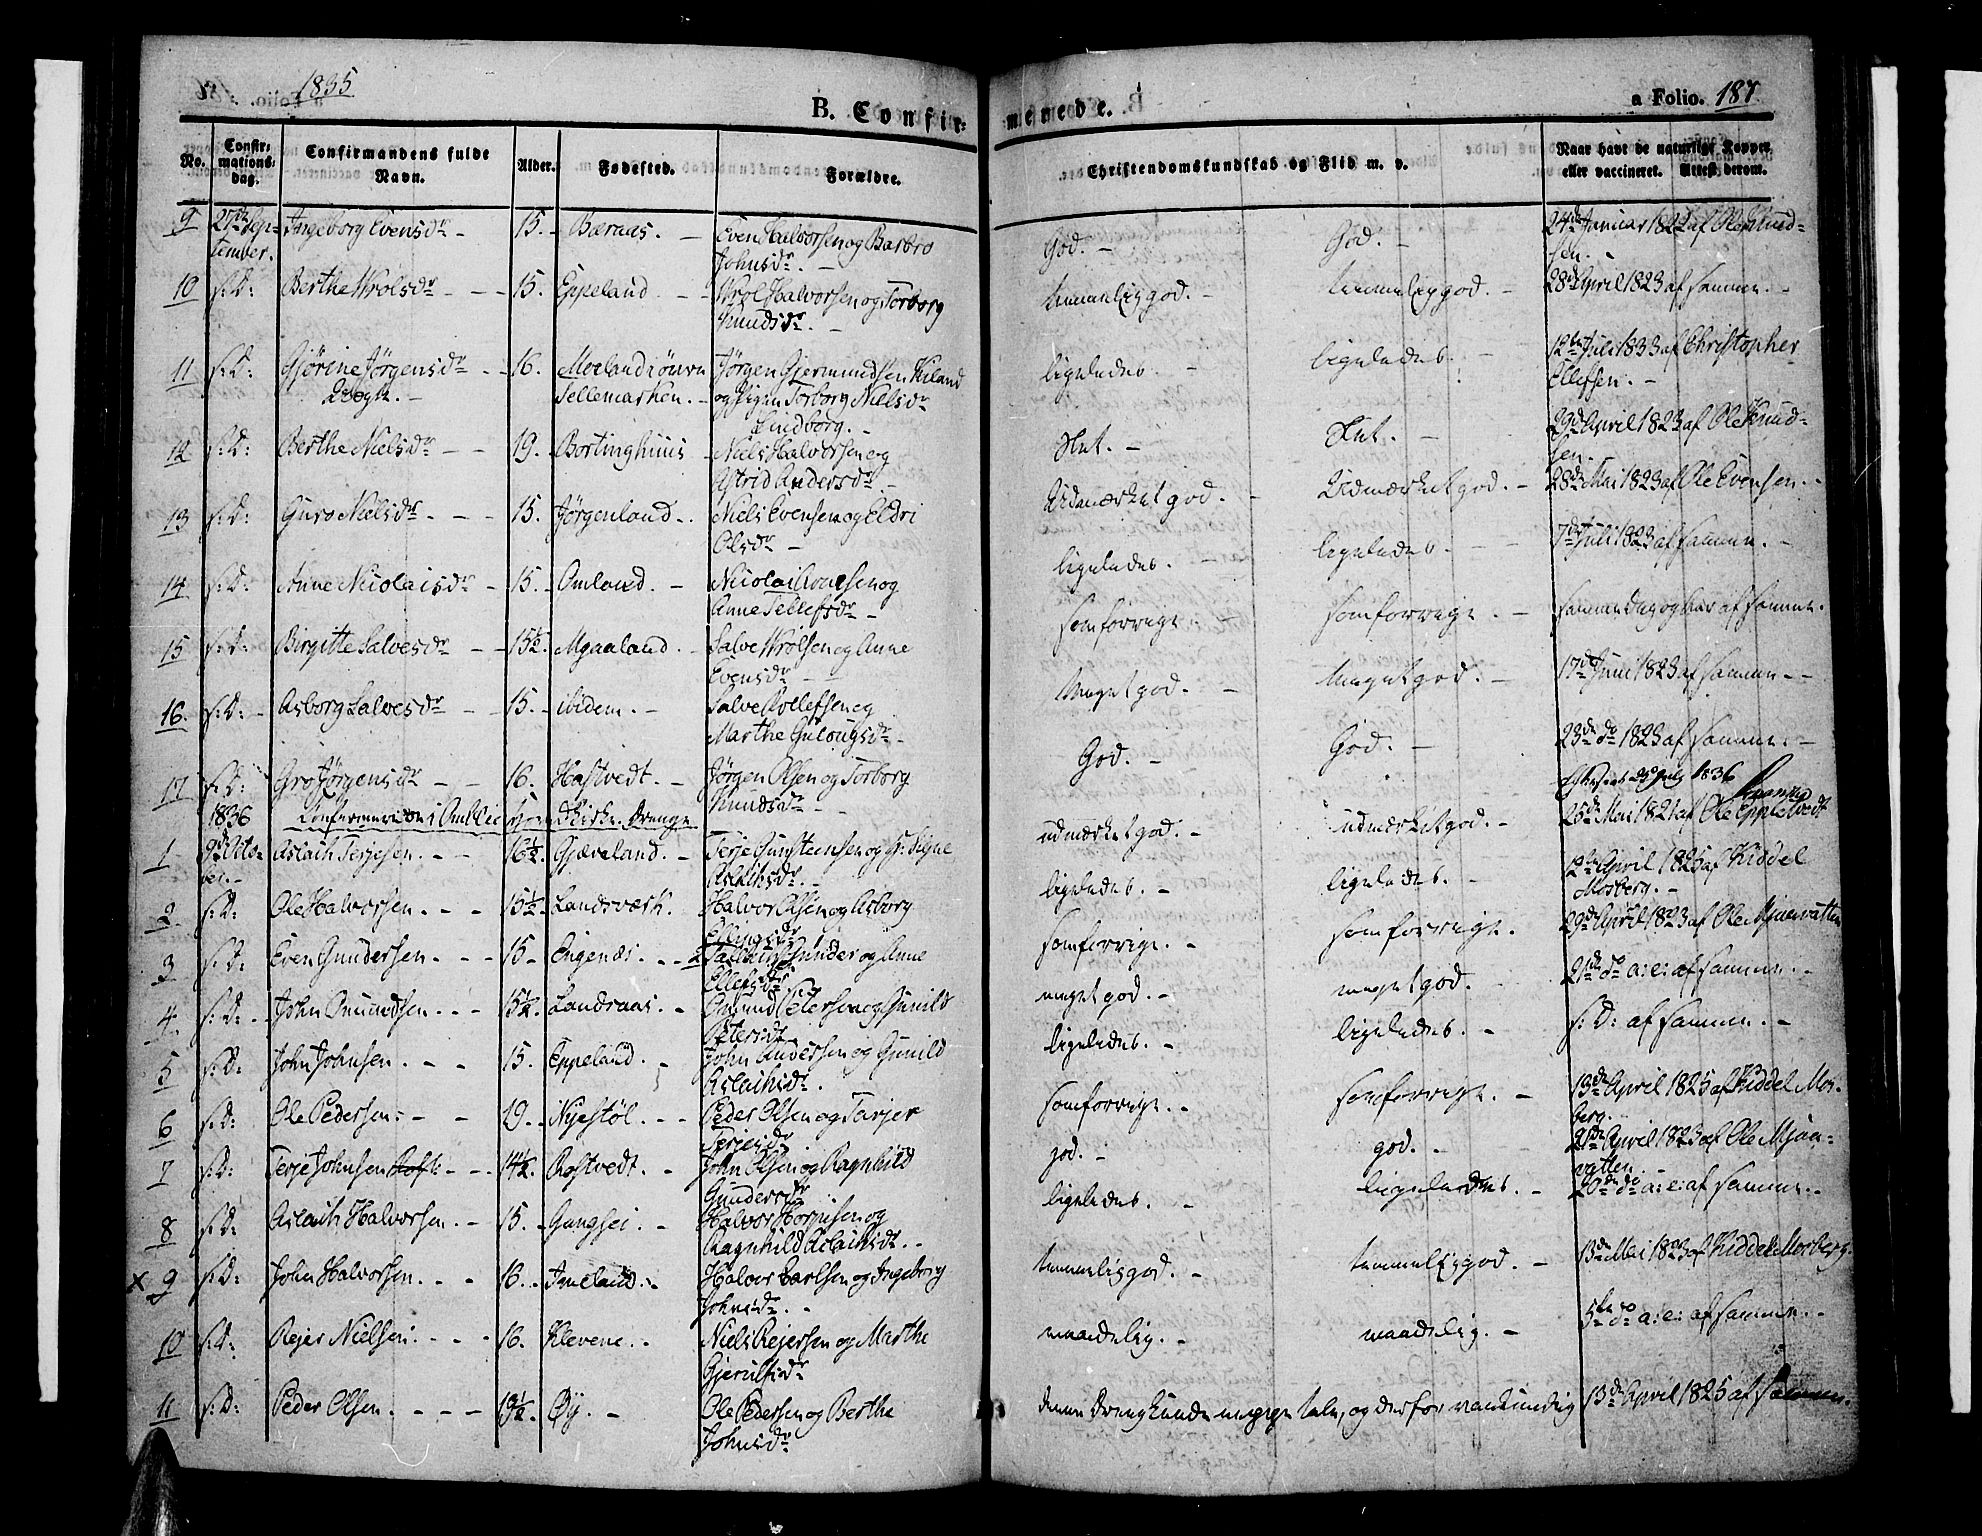 1835
B. Confir=
merede.
a Folio. 187
No.
Confir=
mations=
dag.
Confirmandens fulde
Navn.
Alder.
Fødested.
Forældre.
Christendomskundskab og Flid m. v.
Naar havt de naturlige Kopper
eller vaccineret. Attest derom.
9 27de Sep= Ingeborg Evensdr - 15. - Bæraas. - Even Halvorsen og Barbro God. - God. - 24de Januar 1822 af Ole Knud=
tember. Johnsdr. - sen. -
10 s: D: Berthe Wrolsdr - - - 15. Eppeland. - - Wrol Halvorsen og Torborg temmelig god. - temmelig god. - 28de April 1823 af samme. -
Knudsdr. -
11 s: D: Gjørine Jørgensdr - - 16. Moeland i øvre Jørgen Gjermundsen Kiland ligeledes. - ligeledes. - 12te Juli 1833 af Christopher
Tellemarken. - og Pigen Torborg Nielsdr Ellefsen. -
Lindborg. -
12 s: D: Berthe Nielsdr - - 19. Bortinghuus - Niels Halvorsen og Slet. - Slet. - 29de April 1823 af Ole Knud=
Astrid Andersdr. - sen. -
13 s: D: Guro Nielsdr. - - - 15. Jørgenland - . Niels Evensen og Eldri Udmærket god. - Udmærket god. - 28de Mai 1823 af Ole Evensen. -
Olsdr -
14 s: D: Anne Nicolaisdr - 15. - Omland. - Nicolai og ligeledes. ligeledes. - - 7de Juli 1823 af samme. -
Anne Tellefsdr -
15 s: D: Birgitte Salvesdr - - 15½. Mjaaland. - Salve Wrolsen og Anne som forrige som forrige. - samme Dag og Aar af samme.
Evensdr - -
16. s: D: - Asborg Salvesdr - - 15. - ibidem. - Salve Rollefsen og Meget god. - Meget god. - 17de Juni 1823 af samme. -
Marthe -
17 s: D: Gro Jørgensdr - - 16. Hastvedt. - Jørgen Olsen og Torborg God. - God. - 23de do 1823 af samme. -
Knudsdr -
1836
1836 Confirmerede i Drenge
1 9de Octo= Aslach Terjesen. - - 16½. Gjæveland. - Terje Gunsteinsen og Signe udmærket god. - udmærket god. - 25de Mai 1821 af Ole Eppletvedt
ber. - Aslachsdr. -
2 s: D: Ole Halvorsen. - - 15½. Landsværk. Halvor Olsen og Asborg ligeledes. - ligeledes. - 12te April 1825 af Kiddel
Ellingsdr Mosberg. -
3 s: D: Even Gundersen. - - - 15 - Engenæs. - - Gunder og Anne som forrige. - som forrige. 29de April 1823 af Ole Mjaavatten
Ellefsdr
4. s: D: - John Omundsen. - - - 15½. Landraas. - Omund Petersen og Gunild meget god. - meget god. 21de do a: c: af samme. -
Petersdr
5 s: D: John Johnsen. - - - 15. Eppeland. - John Andersen og Gunild ligeledes. - ligeledes. - s: D: af samme. -
Aslachsdr.
6 s: D: Ole Pedersen: - - 19. - Nyestøl. - - - Peder Olsen og Tarjer som forrige. - som forrige. - 13de April 1825 af Kiddel Mos=
Terjesdr berg.
7 s: D: Terje Johnsen - - - 14½. Rostvedt. - John Olsen og Ragnhild god. - god. - 21de April 1823 af Ole Mjaa=
Gundersdr vatten. -
8 s: D: Aslach Halvorsen. - 15. - Gangsei. - Halvor og ligeledes. - ligeledes. - 20de do a: c: af samme. -
Ragnhild Aslachsdr. -
x 9 s: D: John Halvorsen. - - 16. - Imeland. - Halvor Carlsen og Ingeborg temmelig god. - temmelig god. - 13de Mai 1823 af Kiddel Mosberg.
Johnsdr. -
10 s: D: Rejer Nielsen: - - - - 16. Klevene. - Niels Rejersen og Marthe maadelig. - maadelig. - 5te do a: c: af samme. -
Gjerulfsdr
11 s: D: Peder Olsen. - - - - 19½. Øy. - Ole Pedersen og Berthe denne Dreng kunde tale, og derfor vankundig 13de April 1825 af samme.
Johnsdr